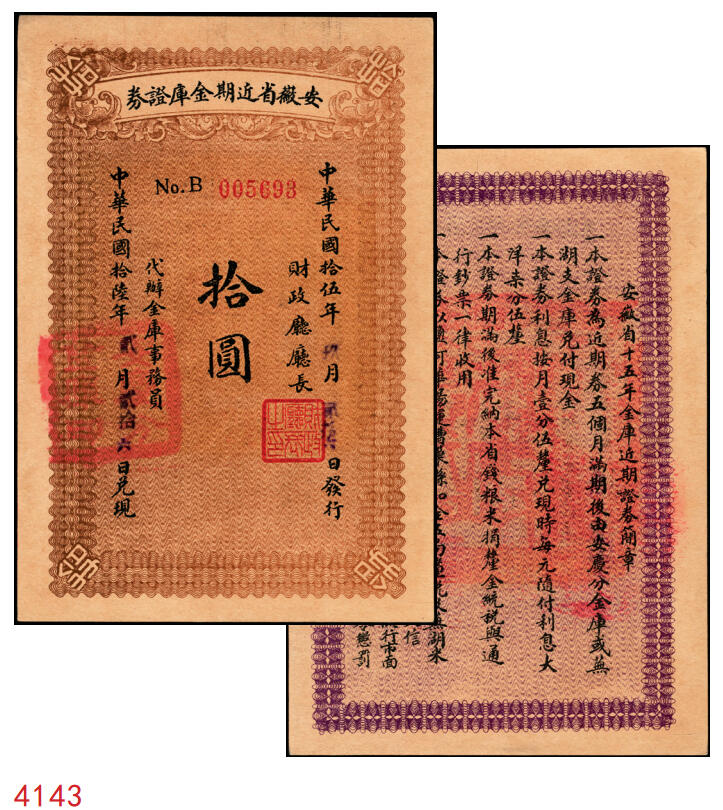 安徽省近期金庫證券
No. B 005693
中華民國拾伍年 玖月 日發行
財政廳廳長
財政廳長之印
拾圓
代辦金庫事務員
中華民國拾陸年貳月貳拾六日兌現
安徽省十五年金庫近期證券簡章
一本證券為近期券五個月滿期後由安慶分金庫或蕪
湖支金庫兌付現金
一本證券利息按月壹分伍釐兌現時每元隨付利息大
洋柒分伍釐
一本證券期滿後准完納本省錢粮米捐釐金統稅與通
行鈔票一律收用
一本證券以
蕪湖米
信
行市面
懲罰
4143